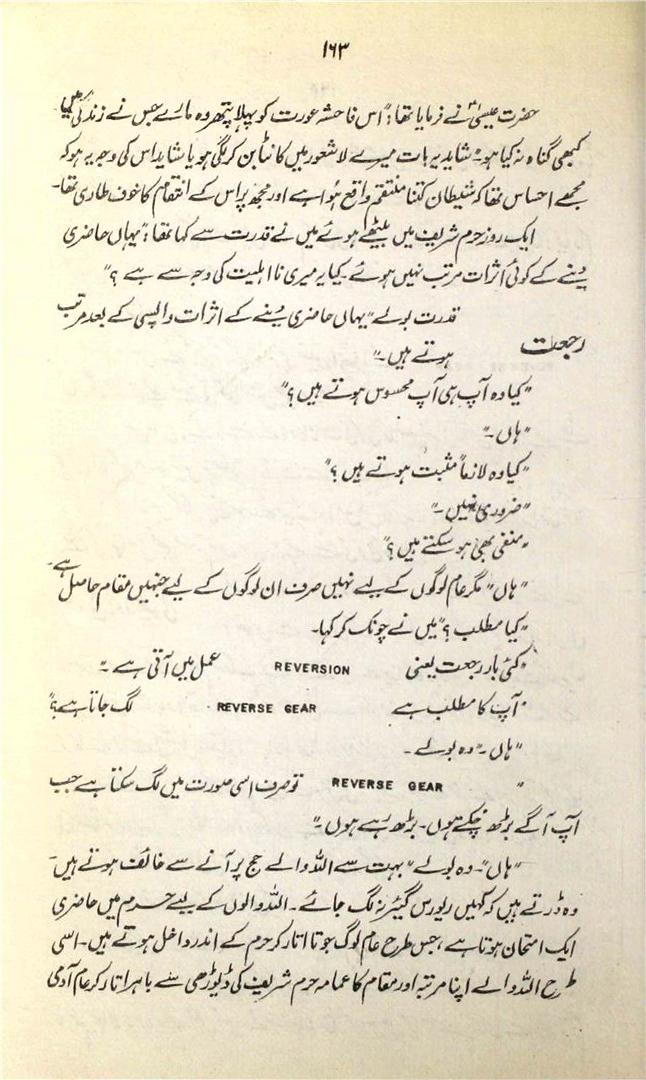 ۱۶۳
حضرت عیسیٰؑ نے فرمایا تھا: "اس فاحشہ عورت کو پہلا پتھر وہ مارے جس نے زندگی میں
کبھی گناہ نہ کیا ہو۔" شاید یہ بات میرے لاشعور میں کانٹا بن کر لگی ہو یا شاید اس کی وجہ یہ ہو کہ
مجھے احساس تھا کہ شیطان کتنا منتقم واقع ہوا ہے اور مجھ پر اس کے انتقام کا خوف طاری تھا۔
ایک روز حرم شریف میں بیٹھے ہوئے میں نے قدرت سے کہا تھا: "یہاں حاضری
دینے کے کوئی اثرات مرتب نہیں ہوئے۔ کیا یہ میری نااہلیت کی وجہ سے ہے ؟"
قدرت بولے "یہاں حاضری دینے کے اثرات واپسی کے بعد مرتب
رجعت
ہوتے ہیں۔"
"کیا وہ آپ ہی آپ محسوس ہوتے ہیں؟"
"ہاں۔"
"کیا وہ لازماً مثبت ہوتے ہیں ؟"
"ضروری نہیں۔"
"منفی بھی ہو سکتے ہیں؟"
"ہاں" مگر عام لوگوں کے لیے نہیں صرف ان لوگوں کے لیے جنہیں مقام حاصل ہے۔
"کیا مطلب ؟" میں نے چونک کر کہا۔
"کئی بار رجعت یعنی REVERSION عمل میں آتی ہے۔"
"آپ کا مطلب ہے REVERSE GEAR لگ جاتا ہے؟"
"ہاں۔" وہ بولے۔
" REVERSE GEAR تو صرف اسی صورت میں لگ سکتا ہے جب
آپ آگے بڑھ چکے ہوں۔ بڑھ رہے ہوں۔"
"ہاں"۔ وہ بولے "بہت سے اللہ والے حج پر آنے سے خائف ہوتے ہیں۔
وہ ڈرتے ہیں کہ کہیں ریورس گیئر نہ لگ جائے۔ اللہ والوں کے لیے حرم میں حاضری
ایک امتحان ہوتا ہے، جس طرح عام لوگ جوتا اتار کر حرم کے اندر داخل ہوتے ہیں۔ اسی
طرح اللہ والے اپنا مرتبہ اور مقام کا عمامہ حرم شریف کی ڈیوڑھی سے باہر اتار کر عام آدمی